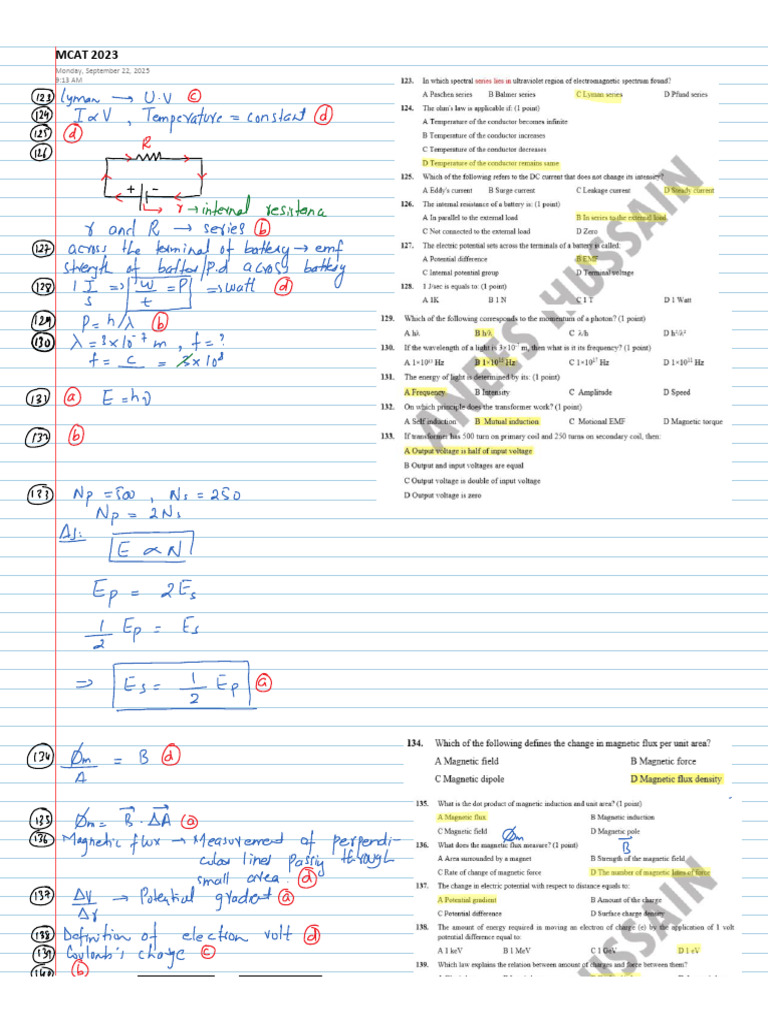 MCAT 2023
Monday, September 22, 2025
9:13 AM
(123) Lyman → U.V (c)
(124) I ∝ V , Temperature = constant (d)
(125) (d)
(126)
R
+ -
r → internal resistance
r and R → series (b)
(127) across the terminal of battery → emf
strength of battery/P.d across battery
(128) 1 J/s => w/t = P => watt (d)
(129) P = h/λ (b)
(130) λ = 3×10⁻⁷ m , f = ?
f = c = 3×10⁸
(131) (a) E = hυ
(132) (b)
(133) Np = 500 , Ns = 250
Np = 2Ns
As:
E ∝ N
Ep = 2Es
1/2 Ep = Es
=> Es = 1/2 Ep (a)
(134) Øm/A = B (d)
(135) Øm = B⃗ . ΔA⃗ (a)
(136) Magnetic flux → Measurement of perpendi-
cular lines passing through
small area. (d)
(137) ΔV/Δr → Potential gradient (a)
(138) Definition of electron volt (d)
(139) Coulomb's charge (c)
(140) (b)
123. In which spectral series lies in ultraviolet region of electromagnetic spectrum found?
A Paschen series B Balmer series C Lyman series D Pfund series
124. The ohm's law is applicable if: (1 point)
A Temperature of the conductor becomes infinite
B Temperature of the conductor increases
C Temperature of the conductor decreases
D Temperature of the conductor remains same
125. Which of the following refers to the DC current that does not change its intensity?
A Eddy's current B Surge current C Leakage current D Steady current
126. The internal resistance of a battery is: (1 point)
A In parallel to the external load B In series to the external load
C Not connected to the external load D Zero
127. The electric potential sets across the terminals of a battery is called:
A Potential difference B EMF
C Internal potential group D Terminal voltage
128. 1 J/sec is equals to (1 point)
A 1K B 1 N C 1 T D 1 Watt
129. Which of the following corresponds to the momentum of a photon? (1 point)
A hλ B h/λ C λ/h D h²/λ²
130. If the wavelength of a light is 3×10⁻⁷ m, then what is its frequency? (1 point)
B 1×10¹⁵ Hz
131. The energy of light is determined by its: (1 point)
A Frequency B Intensity C Amplitude D Speed
132. On which principle does the transformer work? (1 point)
A Self induction B Mutual induction C Motional EMF D Magnetic torque
133. If transformer has 500 turn on primary coil and 250 turns on secondary coil, then:
A Output voltage is half of input voltage
B Output and input voltages are equal
C Output voltage is double of input voltage
D Output voltage is zero
ANEES HUSSAIN
134. Which of the following defines the change in magnetic flux per unit area?
A Magnetic field B Magnetic force
C Magnetic dipole D Magnetic flux density
135. What is the dot product of magnetic induction and unit area? (1 point)
A Magnetic flux B Magnetic induction
C Magnetic field D Magnetic pole
Øm B⃗
136. What does the magnetic flux measure? (1 point)
A Area surrounded by a magnet B Strength of the magnetic field
C Rate of change of magnetic force D The number of magnetic lines of force
137. The change in electric potential with respect to distance equals to:
A Potential gradient B Amount of the charge
C Potential difference D Surface charge density
138. The amount of energy required in moving an electron of charge (e) by the application of 1 volt
potential difference equal to:
A 1 keV B 1 MeV C 1 GeV D 1 eV
139. Which law explains the relation between amount of charges and force between them?
HUSSAIN